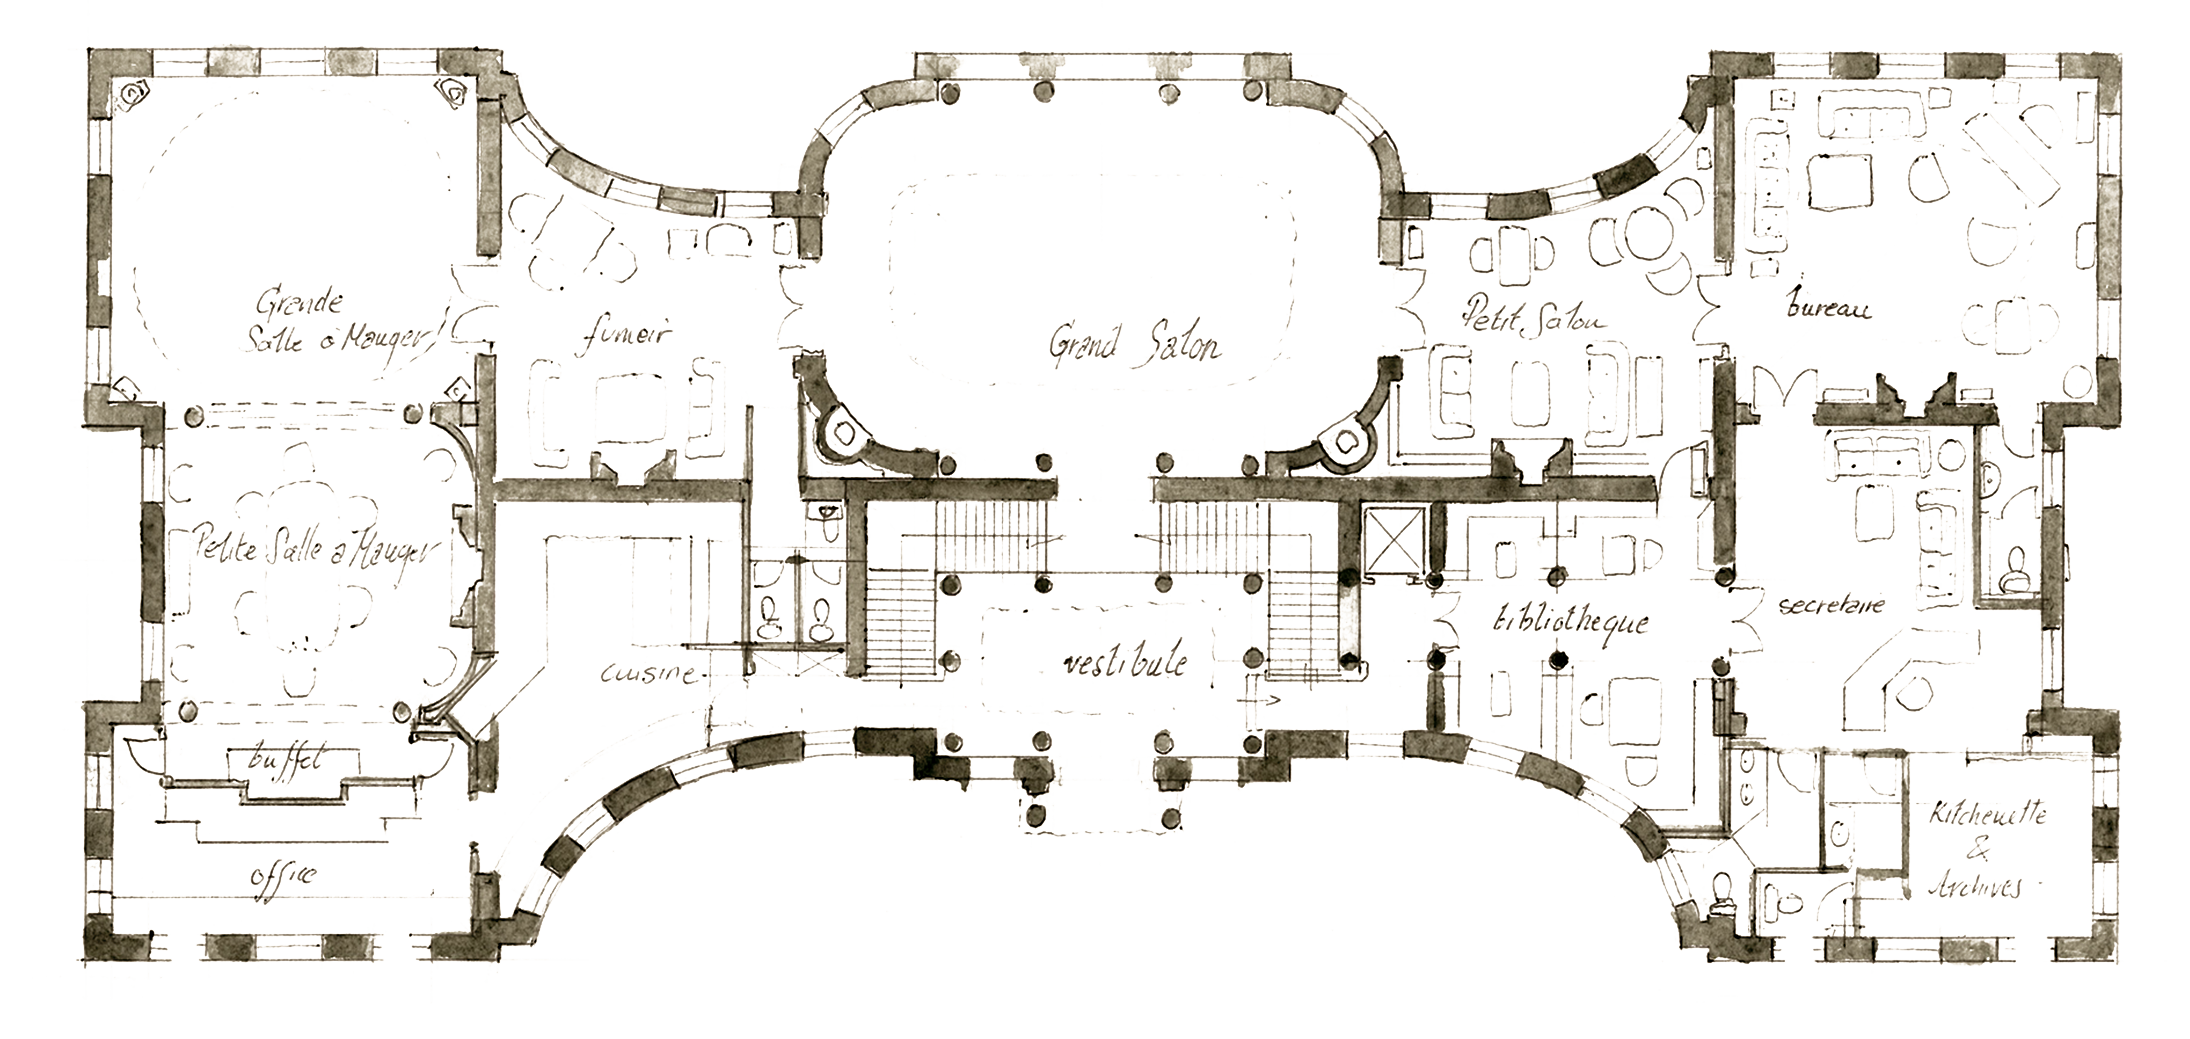 Grande
Salle à Manger
fumoir
Grand Salon
Petit Salon
bureau
Petite Salle a Manger
cuisine
vestibule
bibliotheque
secretaire
buffet
office
Kitchenette
&
Archives